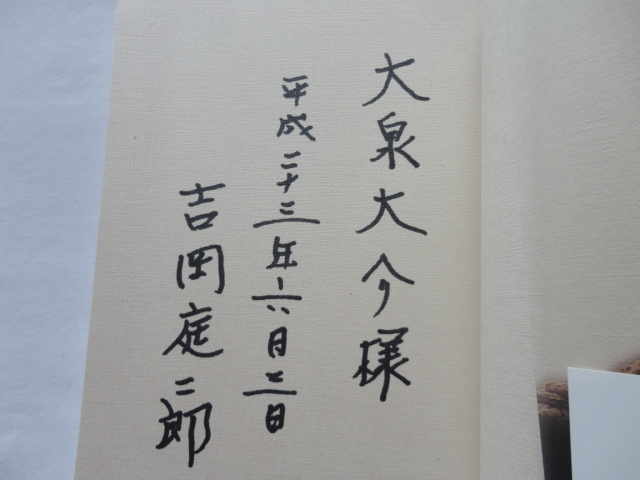 大泉大介様
平成二十三年六月三日
吉岡庭二郎